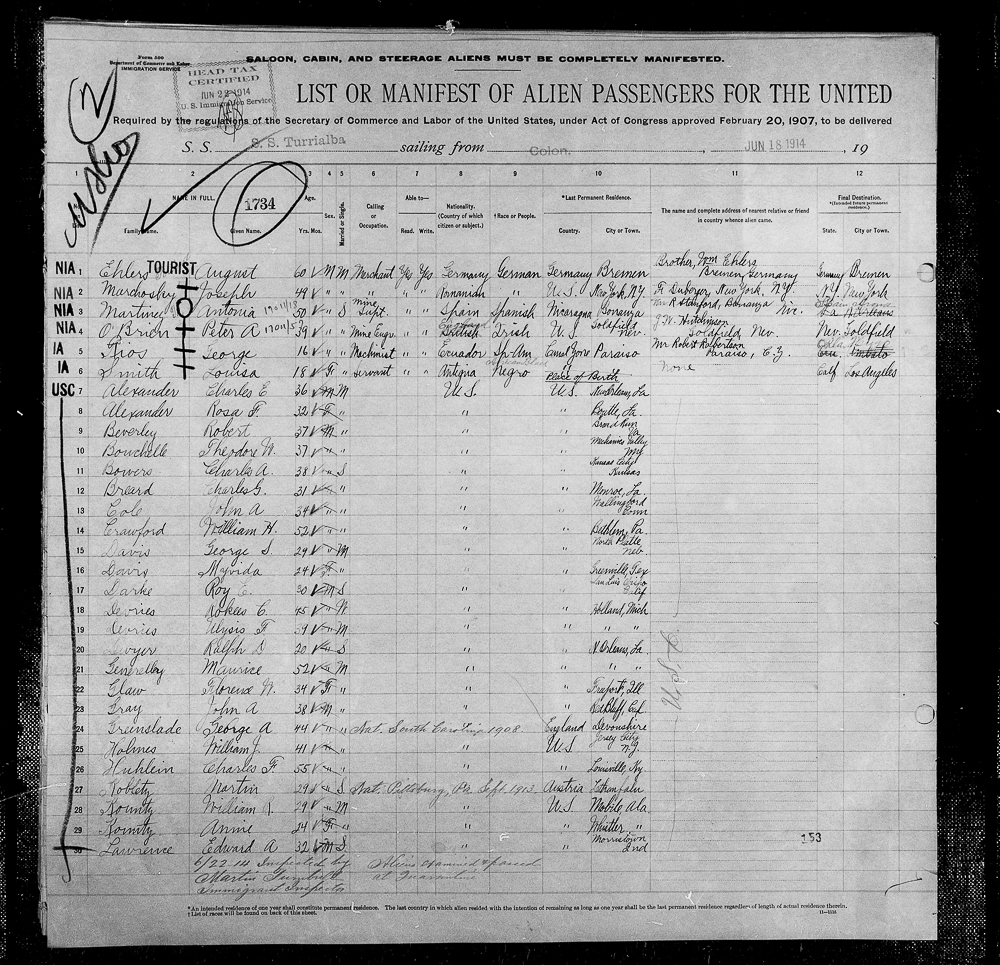 Form 500
Department of Commerce and Labor
IMMIGRATION SERVICE
SALOON, CABIN, AND STEERAGE ALIENS MUST BE COMPLETELY MANIFESTED.
HEAD TAX
CERTIFIED
JUN 22 1914
U. S. Immigration Service
2
LIST OR MANIFEST OF ALIEN PASSENGERS FOR THE UNITED
Required by the regulations of the Secretary of Commerce and Labor of the United States, under Act of Congress approved February 20, 1907, to be delivered
S. S. S. S. Turrialba sailing from Colon. , JUN 18 1914 , 19
1 2 3 4 5 6 7 8 9 10 11 12
NAME IN FULL. Age. Sex. Married or Single. Calling or Occupation. Able to— Nationality. (Country of which citizen or subject.) †Race or People. *Last Permanent Residence. The name and complete address of nearest relative or friend in country whence alien came. Final Destination. *(Intended future permanent residence.)
1734
Family Name. Given Name. Yrs. Mos. Read. Write. Country. City or Town. State. City or Town.
NIA 1 Ehlers TOURIST August 60 M M Merchant Yes Yes Germany German Germany Bremen Brother, Wm Ehlers Bremen, Germany Germany Bremen
NIA 2 Marchosky Joseph 49 " " " Romanian " U.S. New York, N.Y. New York, N.Y. N.Y. New York
NIA 3 Martinez Antonia 50 " S Mine Supt. " " Spain Spanish Nicaragua Bonanza Bonanza Nic.
NIA 4 O'Brien Peter A 39 " " Mine Engr. " " British Irish U.S. Goldfield Nev. J.W. Hutchinson Goldfield Nev Nev. Goldfield
IA 5 Rios George 16 " " Machinist " " Ecuador Sp. Am Canal Zone Paraiso Mr Robert Robertson Paraiso, C.Z.
IA 6 Smith Louisa 18 F " servant " " Antigua Negro " " None Calif Los Angeles
Place of Birth
USC 7 Alexander Charles E 36 M M U.S. U.S. New Orleans, La
8 Alexander Rosa F. 32 F " " "
9 Beverley Robert 37 M " " "
10 Bouchelle Theodore W. 37 " " " "
11 Bowers Charles A. 38 " S " " Kansas City Kansas
12 Breard Charles G. 31 " " " " Monroe, La
13 Cole John A 34 " " " " Wallingford Conn
14 Crawford William H. 52 " " " " Bethlem, Pa.
15 Davis George S. 29 " M " " North Platte Neb.
16 Davis 24 F " " " Greenville, Tex
17 Darke Roy E. 30 M S " " San Luis Obispo Calif
18 Devries C. 45 " " " Holland, Mich
19 Devries Ulysis F 39 " M " " " "
20 Dwyer Ralph D 20 " S " " N. Orleans, La.
21 Maurice 52 " M " " " "
22 Glaw Florence W. 34 F " " " Freeport, Ill
23 Gray John A 38 M " " " Red Bluff, Cal
24 Greenslade George A 44 " " Nat. South Carolina 1908 England Devonshire
25 Holmes William J. 41 " " " U.S. Jersey City N.J.
26 Huhlein Charles F. 55 " " " " Louisville, Ky.
27 Martin 29 " S Nat. Pittsburg, Pa. Sept. 1913 Austria
28 Kounty William J. 29 " M " U.S Mobile, Ala
29 Kounty Annie 24 F " " " Whistler, "
30 Lawrence Edward A 32 M S " " Morristown Ind
153
6/22-14 Inspected by Aliens examined & passed
Martin at Quarantine
Immigrant Inspector
*An intended residence of one year shall constitute permanent residence. The last country in which alien resided with the intention of remaining as long as one year shall be the last permanent residence regardless of length of actual residence therein.
† List of races will be found on back of this sheet.